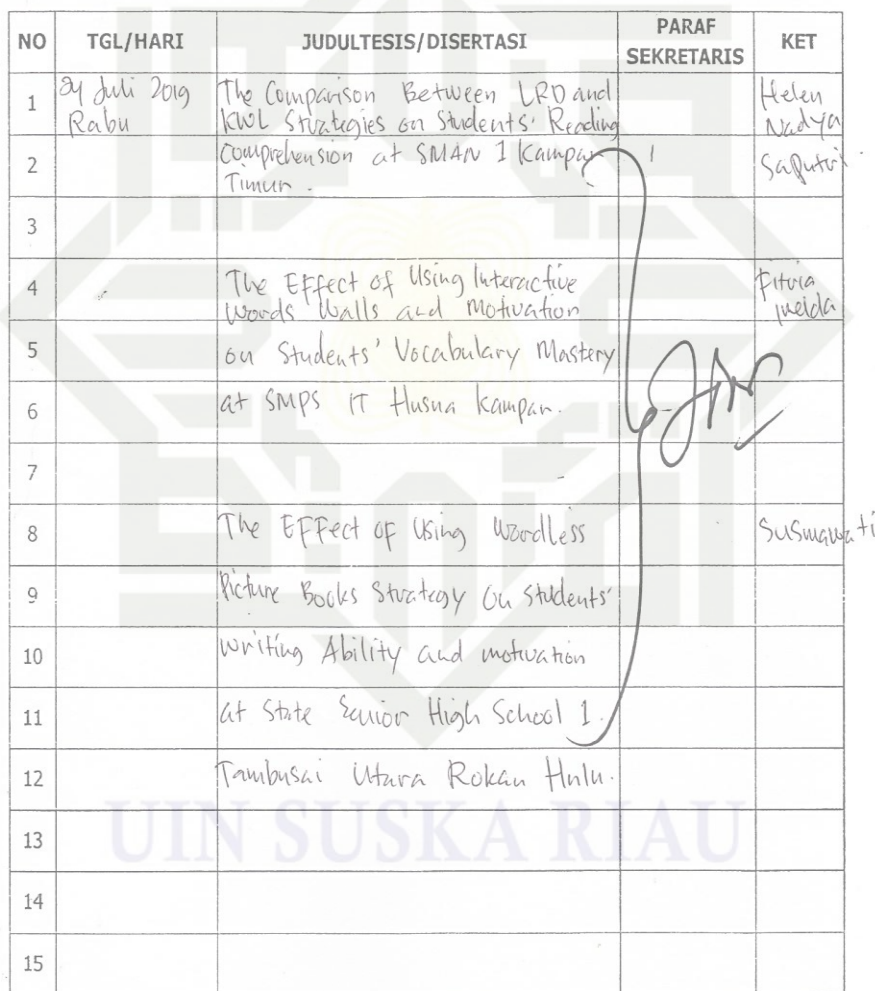 NO TGL/HARI JUDULTESIS/DISERTASI PARAF SEKRETARIS KET
1 24 Juli 2019 The Comparison Between LRD and Helen
Rabu KWL Strategies on Students' Reading Nadya
2 Comprehension at SMAN 1 Kampar Saputri
Timur.
3
4 The Effect of Using Interactive Fitria
Words Walls and Motivation Imelda
5 on Students' Vocabulary Mastery
6 at SMPS IT Husna Kampar.
7
8 The Effect of Using Wordless Susmawati
9 Picture Books Strategy on Students'
10 Writing Ability and motivation
11 at State Senior High School 1
12 Tambusai Utara Rokan Hulu.
13
14
15
UIN SUSKA RIAU